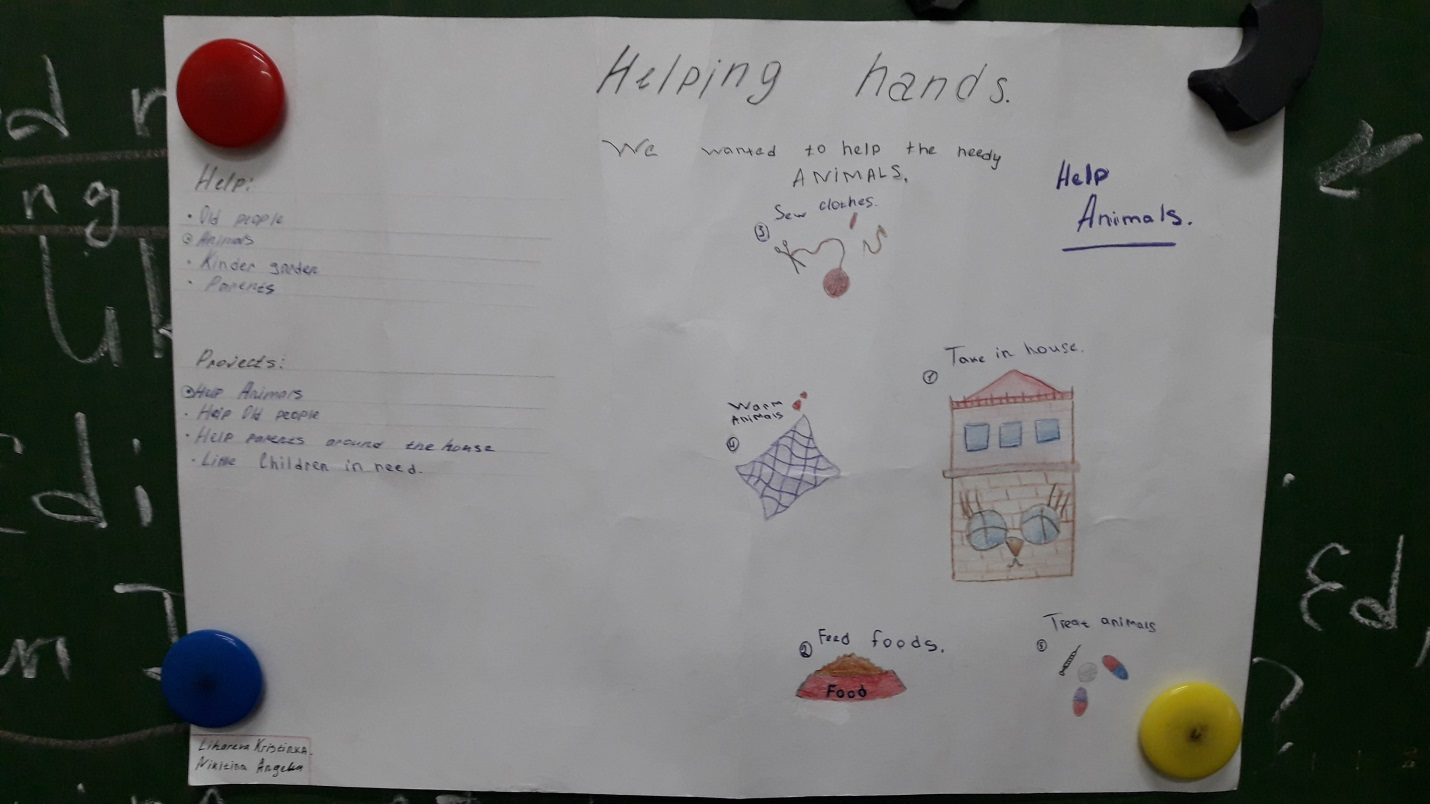 Helping hands.
We wanted to help the needy
ANIMALS.
Help
Animals.
Help:
• Old people
• Animals
• Kinder garden
• Parents
Projects:
• Help Animals
• Help Old people
• Help parents around the house
• Little Children in need.
③ Sew clothes.
④ Warm
Animals
① Take in house.
② Feed foods.
Food
⑤ Treat animals
Lihareva Kristina.
Nikitina Angela